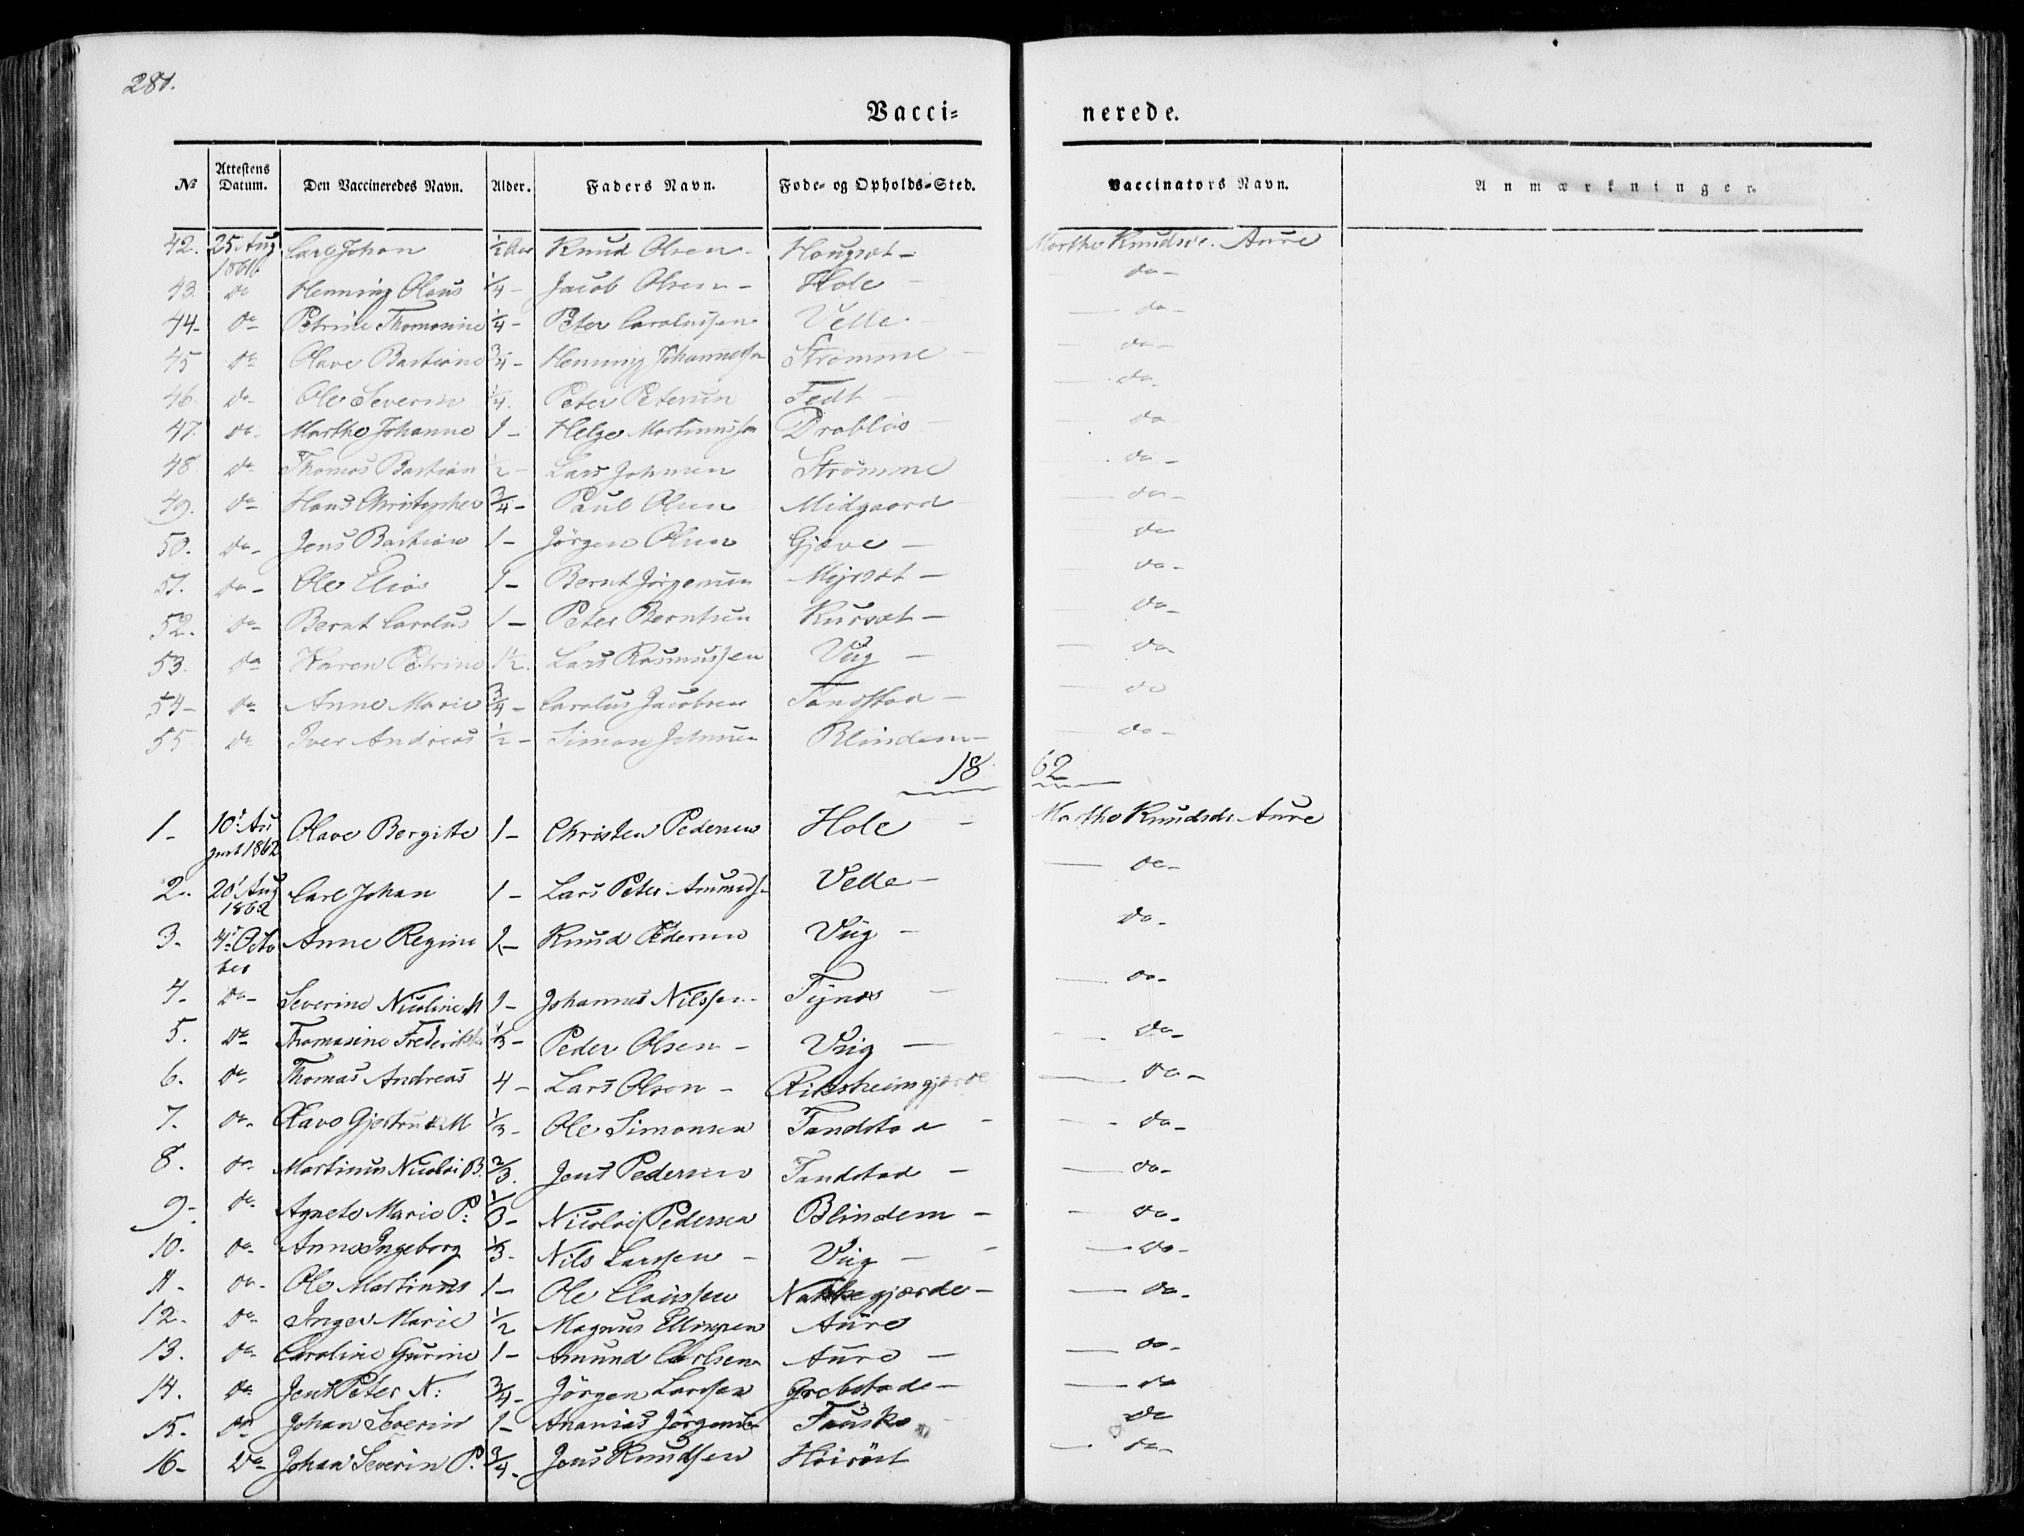 281.
Vacci= nerede.
No Attestens Datum. Den Vaccineredes Navn. Alder. Faders Navn. Fode= og Opholds=Sted. Vaccinators Navn. Anmærkninger.
42. 25 Aug 1861 Carl Johan ½ Aar Knud Olsen - Haugset - Marthe Knudsdr. Aure
43. do Henning Olaus ¼ - Jacob Olsen - Hole - do -
44 - do Petrine Thomasine ¼ - Peter Carolussen Velle - do -
45 do Olave Bastiane ¾ - Henning Johannessen Strømme - do -
46 do - Ole Severin ¼. Peter Petersen Fedt - do -
47. do. Marthe Johanne 1 - Helge Martinussen Drabløs - do -
48 do Thomas Bastian ½ - Lars Johnsen Strømme - do -
49. do - Hans Christopher ¾ - Paul Olsen Midgaard - do -
50. do - Jens Bastian 1 - Jörgen Olsen Gjæve - do
51. do - Ole Elias 1 - Bernt Jörgensen Myrset - do -
52. do - Bernt Carolus 1 - Peter Berntsen Kurset - do -
53. do Karen Petrine 1½. Lars Rasmussen Viig - do
54 - do Anne Marie ¾ - Carolus Jacobsen Tandstad - do
55 do Iver Andreas ½ - Simon Johnsen Blindem - do -
18 62
1 - 10' August 1862 Olave Bergitte 1 - Christen Pedersen Hole - Marthe Knudsdr Aure
2. 20' Aug 1862 Carl Johan 1 - Lars Peter Amundsen Velle - do -
3. 4' October Anne Regine 1 - Knud Pedersen Viig - do -
4 - do - Severine Nicoline M 1 - Johannes Nilssen - Tynes - do -
5. do Thomasine Frederikke ⅓ - Peder Olsen - Viig - do -
6. do - Thomas Andreas 4 - Lars Olsen - Riksheimgjærde do -
7. do - Olave Gjertrud M ⅓ - Ole Simonsen Tandstad - do -
8. do Martinus Nicolai B. ⅔. Jens Pedersen Tandstad - do -
9 - do - Agnete Marie P: ⅓ - Nicolai Pedersen Blindem - do -
10. do - Anne Ingeborg ⅓ - Nils Larssen - Viig - do -
11 - do - Ole Martinus 1 - Ole Claussen Nakkegjærde - do -
12. do - Inger Marie ½ Magnus Ellingsen Aure
13. do - Caroline Gurine 1 - Amund Carlsen Aure - do -
14. do Jens Peter N: ¾ - Jörgen Larssen Grebstade - do
15. do Johan Severin 1 - Ananias Jörgensen Fauske do
16 - do - Johan Severin P. ¾ - Jens Knudsen Höiröst - do -